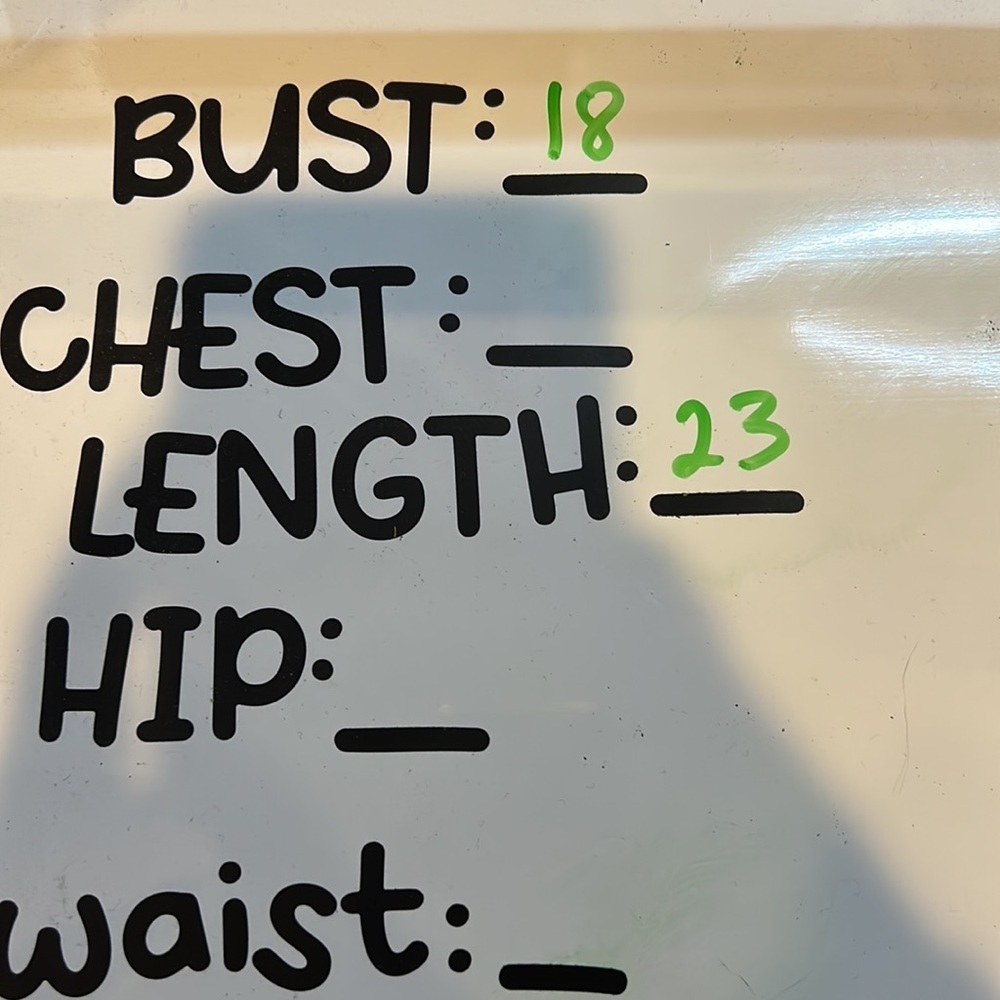 BUST: 18
CHEST: _
LENGTH: 23
HIP: _
waist: _